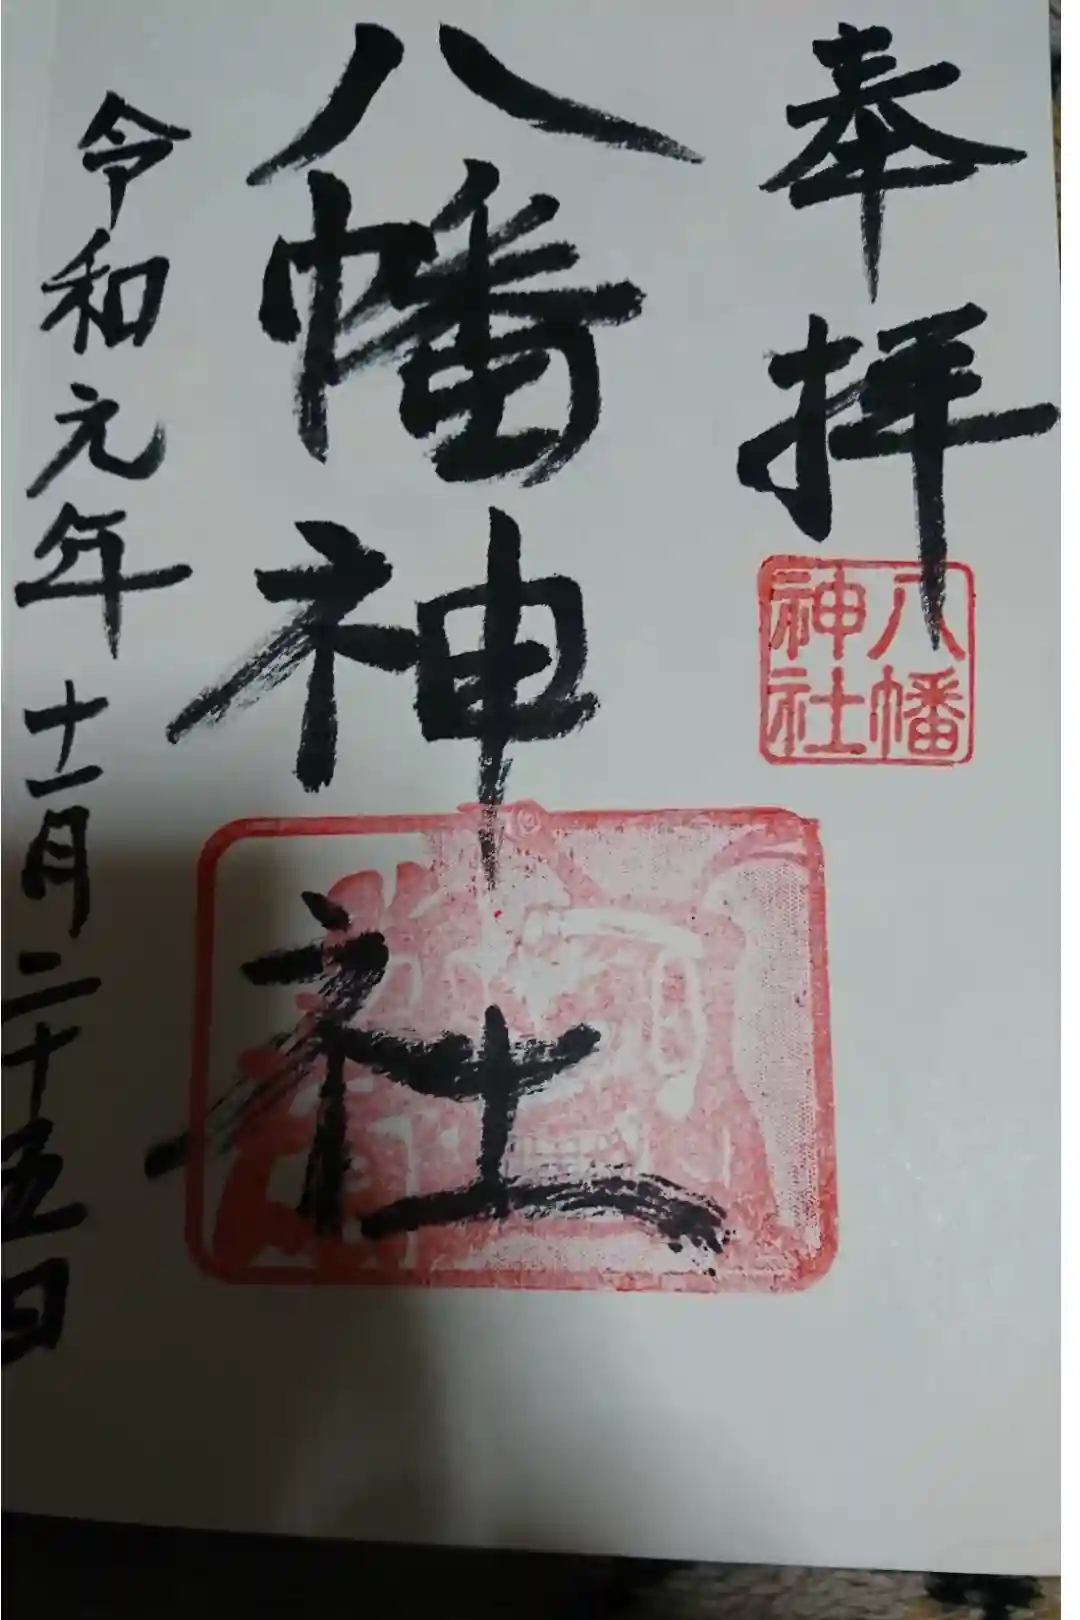 奉拝
八幡
神社
八幡神社
令和元年十一月二十五日